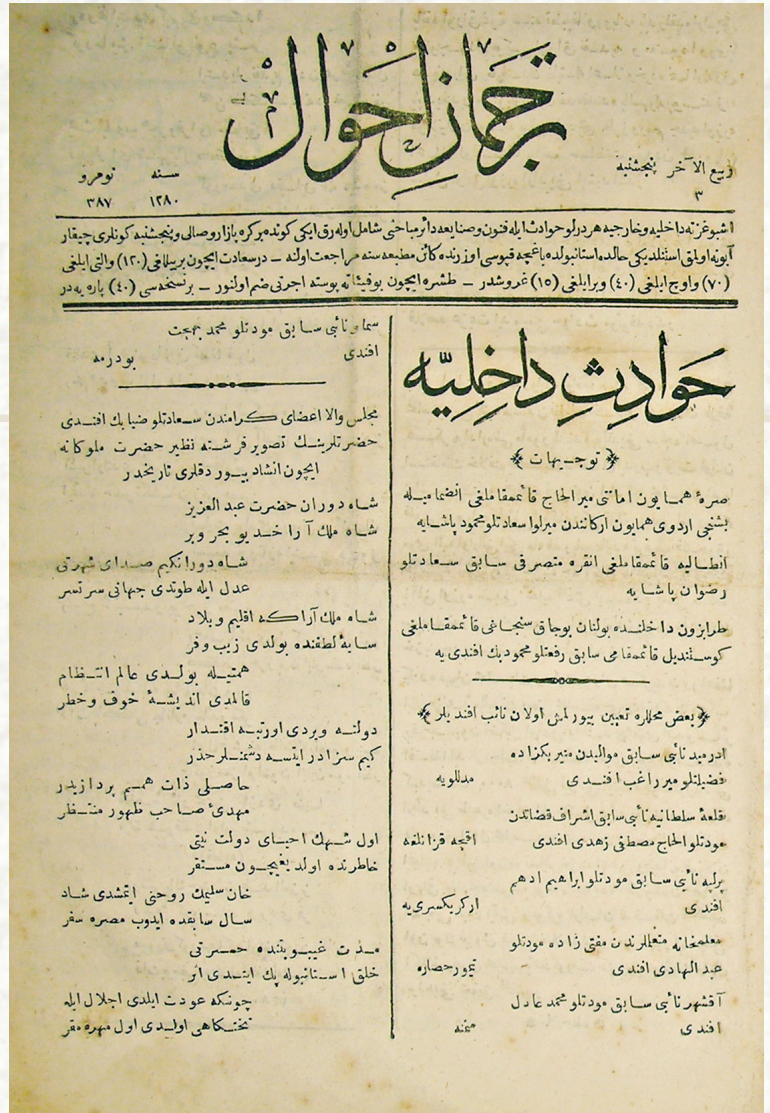 ترجمان احوال
ربيع الآخر پنجشنبه
٣
سنه نومرو
١٢٨٠ ٣٨٧
اشبو غزته داخليه و خارجيه هر درلو حوادث ايله فنون و صنايعه دائر مباحثى شامل اوله رق ايكى كونده بر كره بازار و صالى و پنجشنبه كونلرى چيقار
آبونه اولمق استنلديكى حالده استانبولده باغچه قپوسى اوزرنده كائن مطبعه سنه مراجعت اولنه – درسعادت ايچون بر ييللغى (١٢٠) والتى ايلغى
(٧٠) و اوچ ايلغى (٤٠) و بر ايلغى (١٥) غروشدر – طشره ايچون بو فيئاته پوسته اجرتى ضم اولنور – بر نسخه سى (٤٠) پاره يه در
حوادث داخليه
﴿ توجيهات ﴾
صره همايون امانتى مير الحاج قائممقاملغى انضماميله
بشنجى اردوى همايون اركانندن ميرلوا سعادتلو محمود پاشايه
انطاليه قائممقاملغى انقره متصرفى سابق سعادتلو
رضوان پاشايه
طرابزون داخلنده بولنان بوجاق سنجاغى قائممقاملغى
كوستنديل قائممقامى سابق رفعتلو محمود بك افندى يه
﴿ بعض محللره تعيين بيورلمش اولان نائب افنديلر ﴾
ادرميد نائبى سابق مواليدن منير بكزاده
فضيلتلو مير راغب افندى مدللويه
قلعه سلطانيه نائبى سابق اشراف قضاتدن
مودتلو الحاج مصطفى زهدى افندى اقچه قزانلغه
پرلپه نائبى سابق مودتلو ابراهيم ادهم
افندى اركركسرى يه
معلمخانه متعلملرندن مفتى زاده مودتلو
عبد الهادى افندى تيمور حصاره
آقشهر نائبى سابق مودتلو محمد عادل
افندى
سماو نائبى سابق مودتلو محمد بهجت
افندى بودرمه
مجلس والا اعضاى كرامندن سعادتلو ضيا بك افندى
حضرتلرينك تصوير فرشته نظير حضرت ملوكانه
ايچون انشاد بيوردقلرى تاريخدر
شاه دوران حضرت عبد العزيز
شاه ملك آرا خديو بحر و بر
شاه دورانكيم صداى شهرتى
عدل ايله طوتدى جهانى سرتسر
شاه ملك آرا كه اقليم و بلاد
سايهٔ لطفنده بولدى زيب و فر
همتيله بولدى عالم انتظام
قالمدى انديشهٔ خوف و خطر
دولته ويردى اورتبه اقتدار
كيم سزادر ايتسه دشمنلر حذر
حاصلى ذات همم پردازيدر
مهدئ صاحب ظهور منتظر
اول شهك احياى دولت نيتى
خاطرنده اولديغيچون مستقر
خان سليمك روحنى ايتمشدى شاد
سال سابقده ايدوب مصره سفر
مدت غيبوبتنده حسرتى
خلق استانبوله پك ايتدى اثر
چونكه عودت ايلدى اجلال ايله
تختكاهى اولدى اول مهره مقر